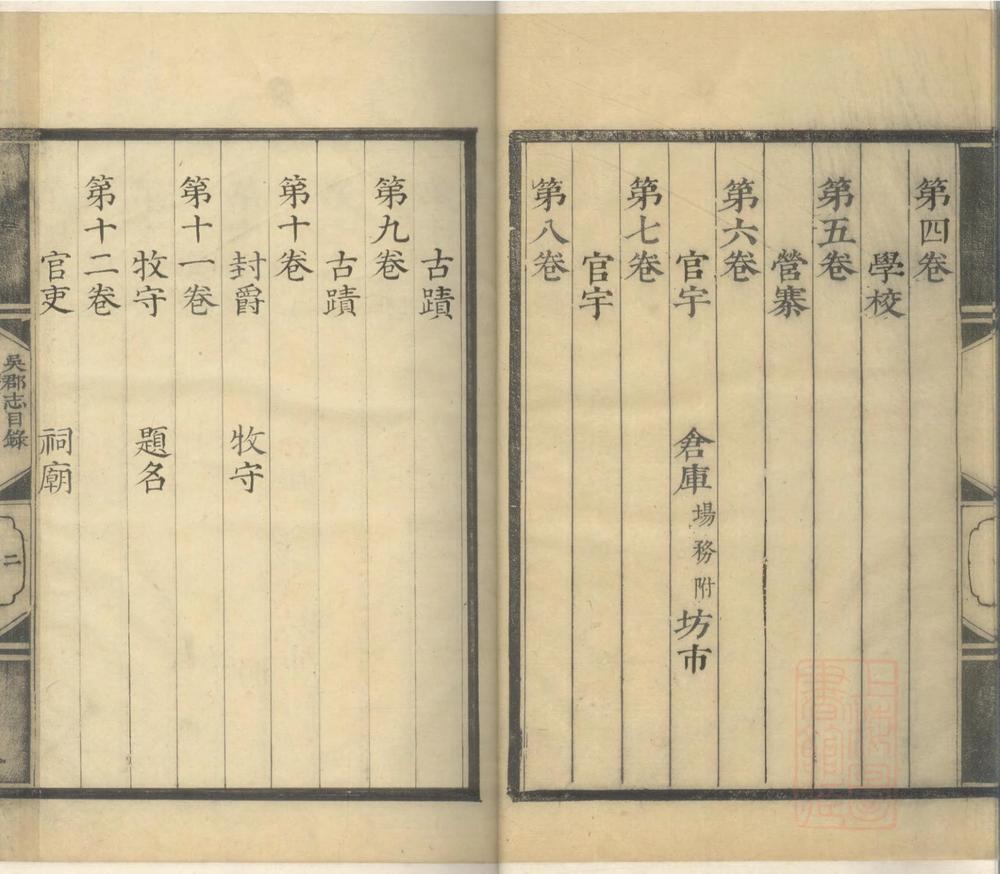 第四卷
學校
第五卷
營寨
第六卷
官宇 倉庫場務附 坊市
第七卷
官宇
第八卷
古蹟
第九卷
古蹟
第十卷
封爵 牧守
第十一卷
牧守 題名
第十二卷
官吏 祠廟
吳郡志目錄
二